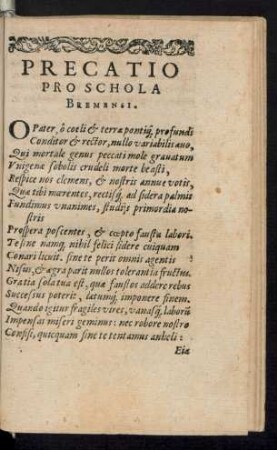 PRECATIO
PRO SCHOLA
BREMENSI.
O Pater, ô coeli & terræ pontiq; profundi
Conditor & rector, nullo variabilis æuo,
Qui mortale genus peccati mole grauatum
Vnigenæ sobolis crudeli morte beasti,
Respice nos clemens, & nostris annue votis,
Quæ tibi mœrentes, rectisq; ad sidera palmis
Fundimus vnanimes, studijs primordia no-
stris
Prospera poscentes, & cœpto faustu labori.
Te sine namq; nihil felici sidere cuiquam
Conari licuit. sine te perit omnis agentis
Nisus, & ægra parit nullos tolerantia fructus.
Gratia sola tua est, quæ faustos addere rebus
Successus poterit, latumq; imponere finem.
Quando igitur fragiles vires, vanasq; laborũ
Impensas miseri gemimus: nec robore nostro
Confisi, quicquam sine te tentamus anheli:
Eia